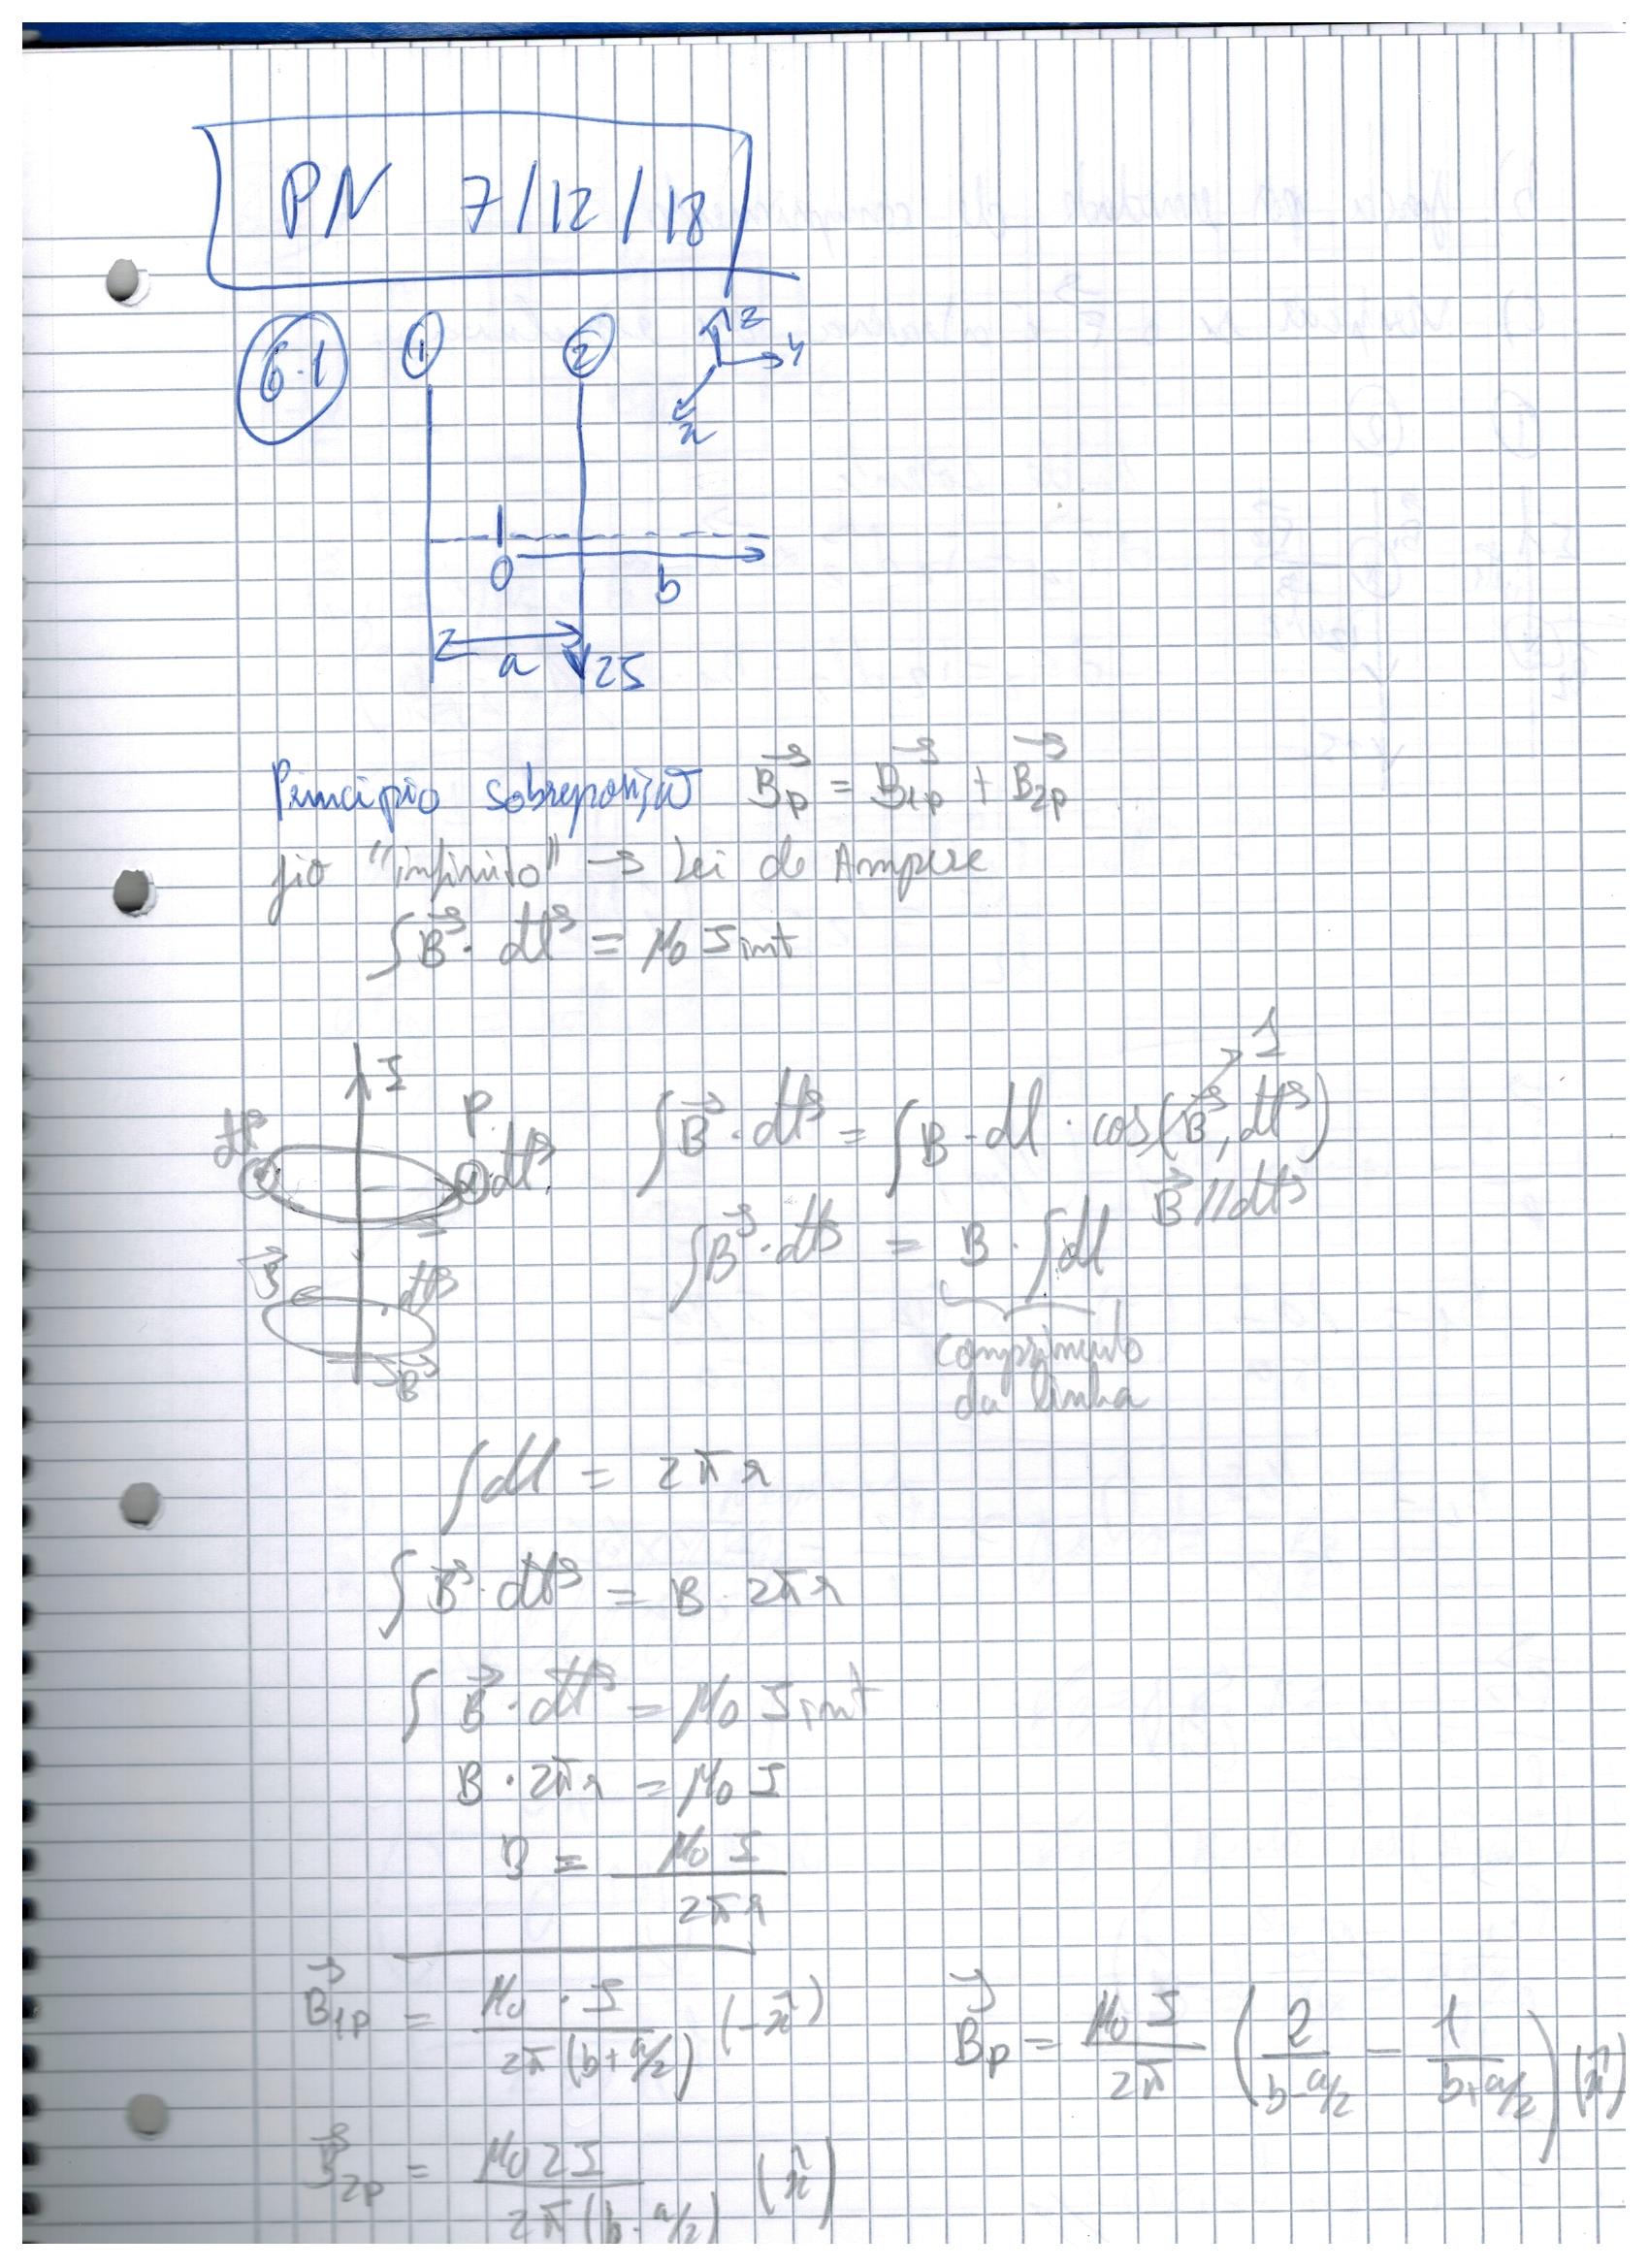 PN 7/12/18
6.1 1 2 z y x
0 b
a 2I
Princípio sobreposição B⃗p = B⃗1p + B⃗2p
fio "infinito" → Lei de Ampere
∫B⃗ · dl⃗ = μ0 I int
I
dl⃗ P dl⃗ ∫B⃗ · dl⃗ = ∫B · dl · cos(B⃗, dl⃗) → 1
B⃗ // dl⃗
B⃗ dl⃗ ∫B⃗ · dl⃗ = B · ∫dl
B⃗ comprimento
da linha
∫dl = 2πr
∫B⃗ · dl⃗ = B · 2πr
∫B⃗ · dl⃗ = μ0 I int
B · 2πr = μ0 I
B = μ0 I / 2πr
B⃗1p = μ0 · I / 2π(b+a/2) (-x̂) B⃗p = μ0 I / 2π (2/(b-a/2) - 1/(b+a/2)) (x̂)
B⃗2p = μ0 2I / 2π(b-a/2) (x̂)